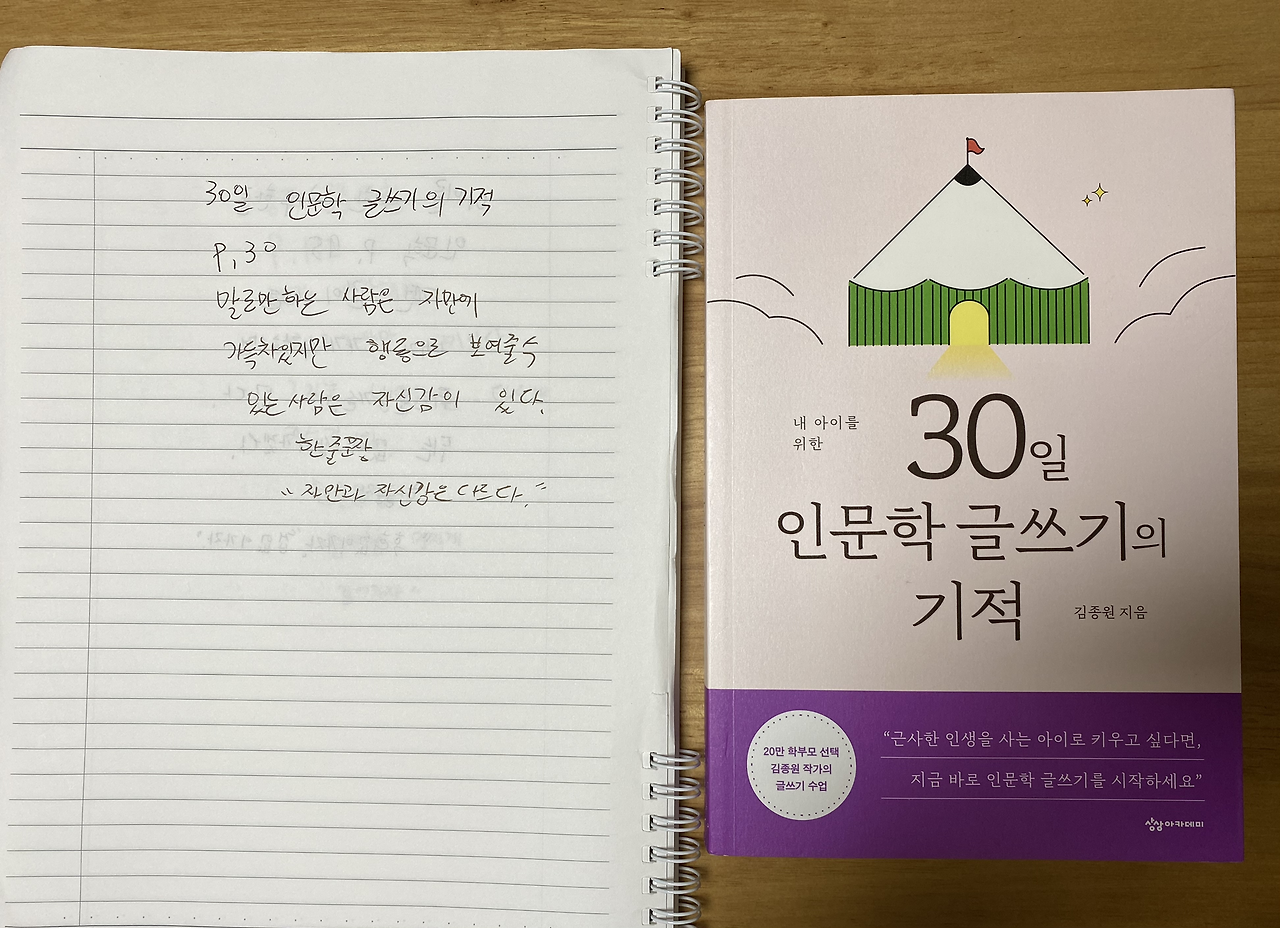 30일 인문학 글쓰기의 기적
P. 30
말로만하는 사람은 자만에
가득차있지만 행동으로 보여줄수
있는사람은 자신감이 있다.
한줄문장
"자만과 자신감은 다르다."
내 아이를
위한
30일
인문학 글쓰기의
기적
김종원 지음
20만 학부모 선택
김종원 작가의
글쓰기 수업
“근사한 인생을 사는 아이로 키우고 싶다면,
지금 바로 인문학 글쓰기를 시작하세요”
상상아카데미